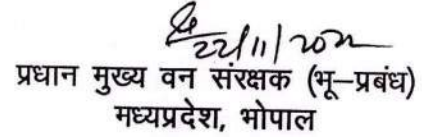 22/11/2022
प्रधान मुख्य वन संरक्षक (भू–प्रबंध)
मध्यप्रदेश, भोपाल